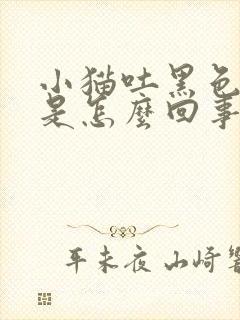 小猫吐黑色
是怎麼回事
平未夜 山崎響